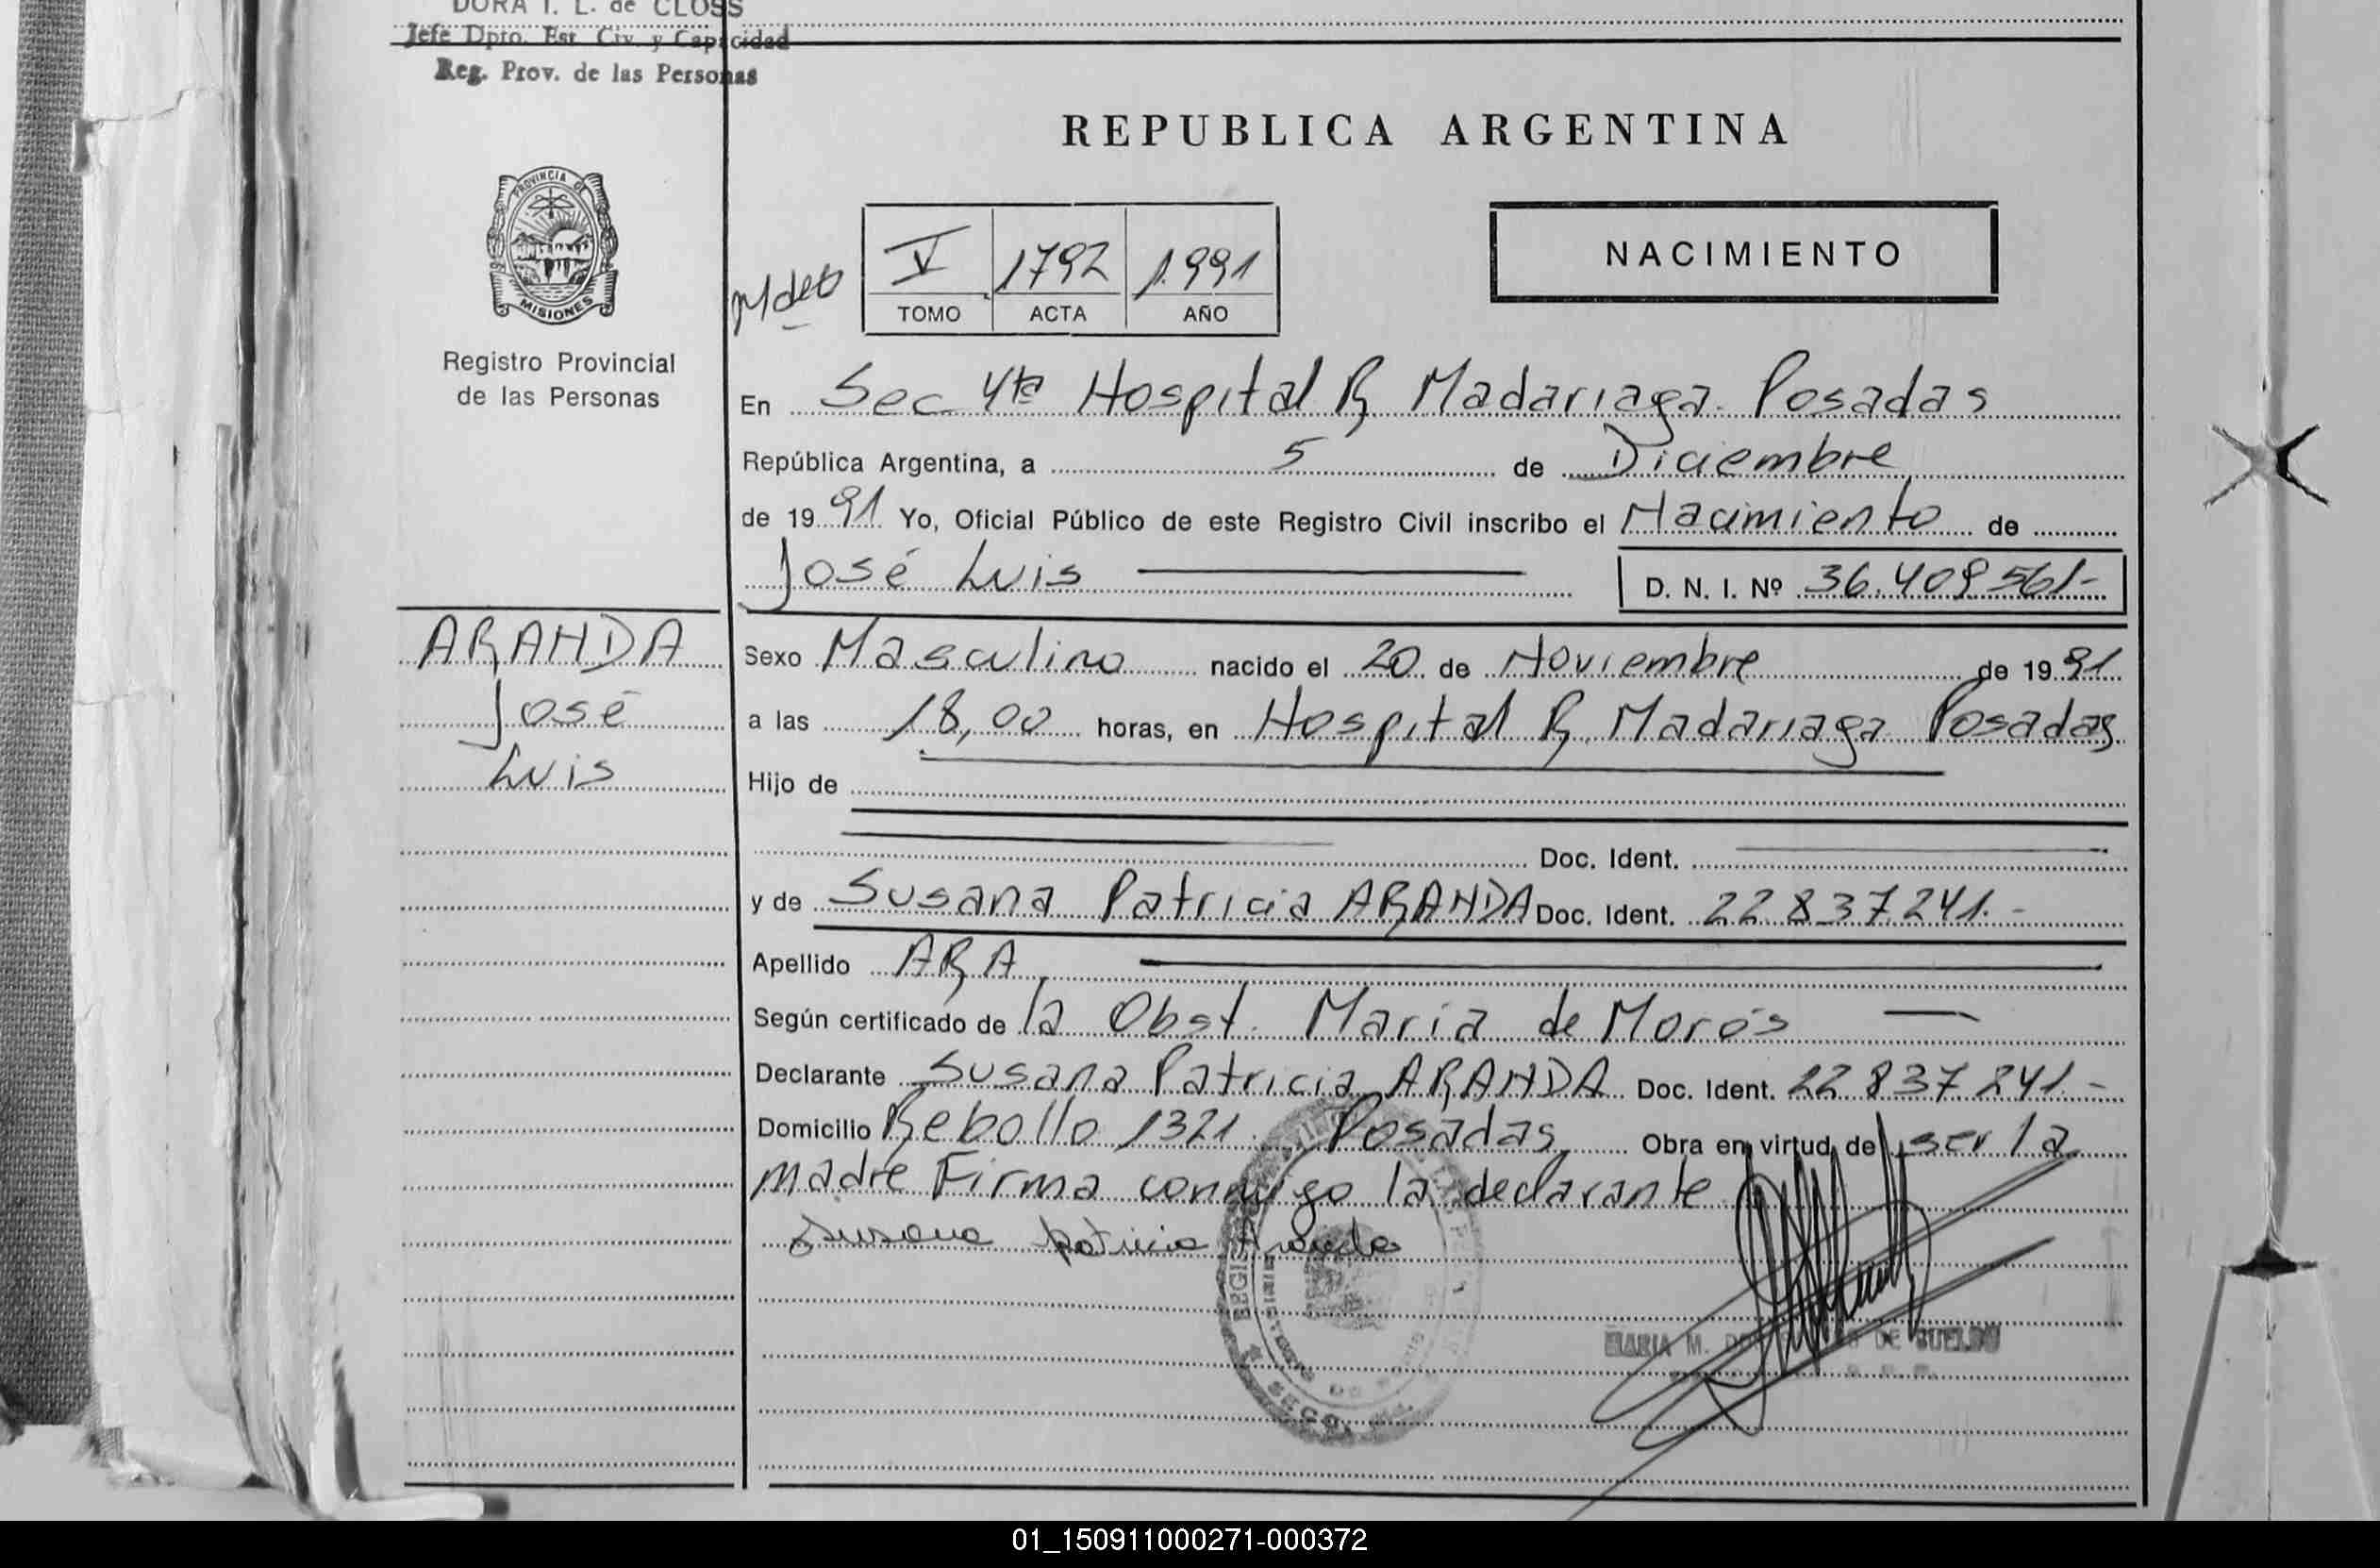 DORA I. L. de CLOSS
Jefe Dpto. Est. Civ. y Capacidad
Reg. Prov. de las Personas
REPUBLICA ARGENTINA
PROVINCIA DE
MISIONES
V 1792 1.991
TOMO ACTA AÑO
NACIMIENTO
Registro Provincial
de las Personas
En Sec 4ta Hospital R Madariaga Posadas
República Argentina, a 5 de Diciembre
de 1991 Yo, Oficial Público de este Registro Civil inscribo el Nacimiento de
José Luis
D. N. I. Nº 36.409 561-
ARANDA
José
Luis
Sexo Masculino nacido el 20 de Noviembre de 1991
a las 18,00 horas, en Hospital R. Madariaga Posadas
Hijo de
Doc. Ident.
y de Susana Patricia ARANDA Doc. Ident. 22 837 241.-
Apellido ARA
Según certificado de la Obst. Maria de Morós
Declarante Susana Patricia ARANDA Doc. Ident. 22 837 241.-
Domicilio Rebollo 1321 Posadas Obra en virtud de ser la
madre Firma conmigo la declarante
Susana Patricia Aranda
MARIA M. DE
01_150911000271-000372